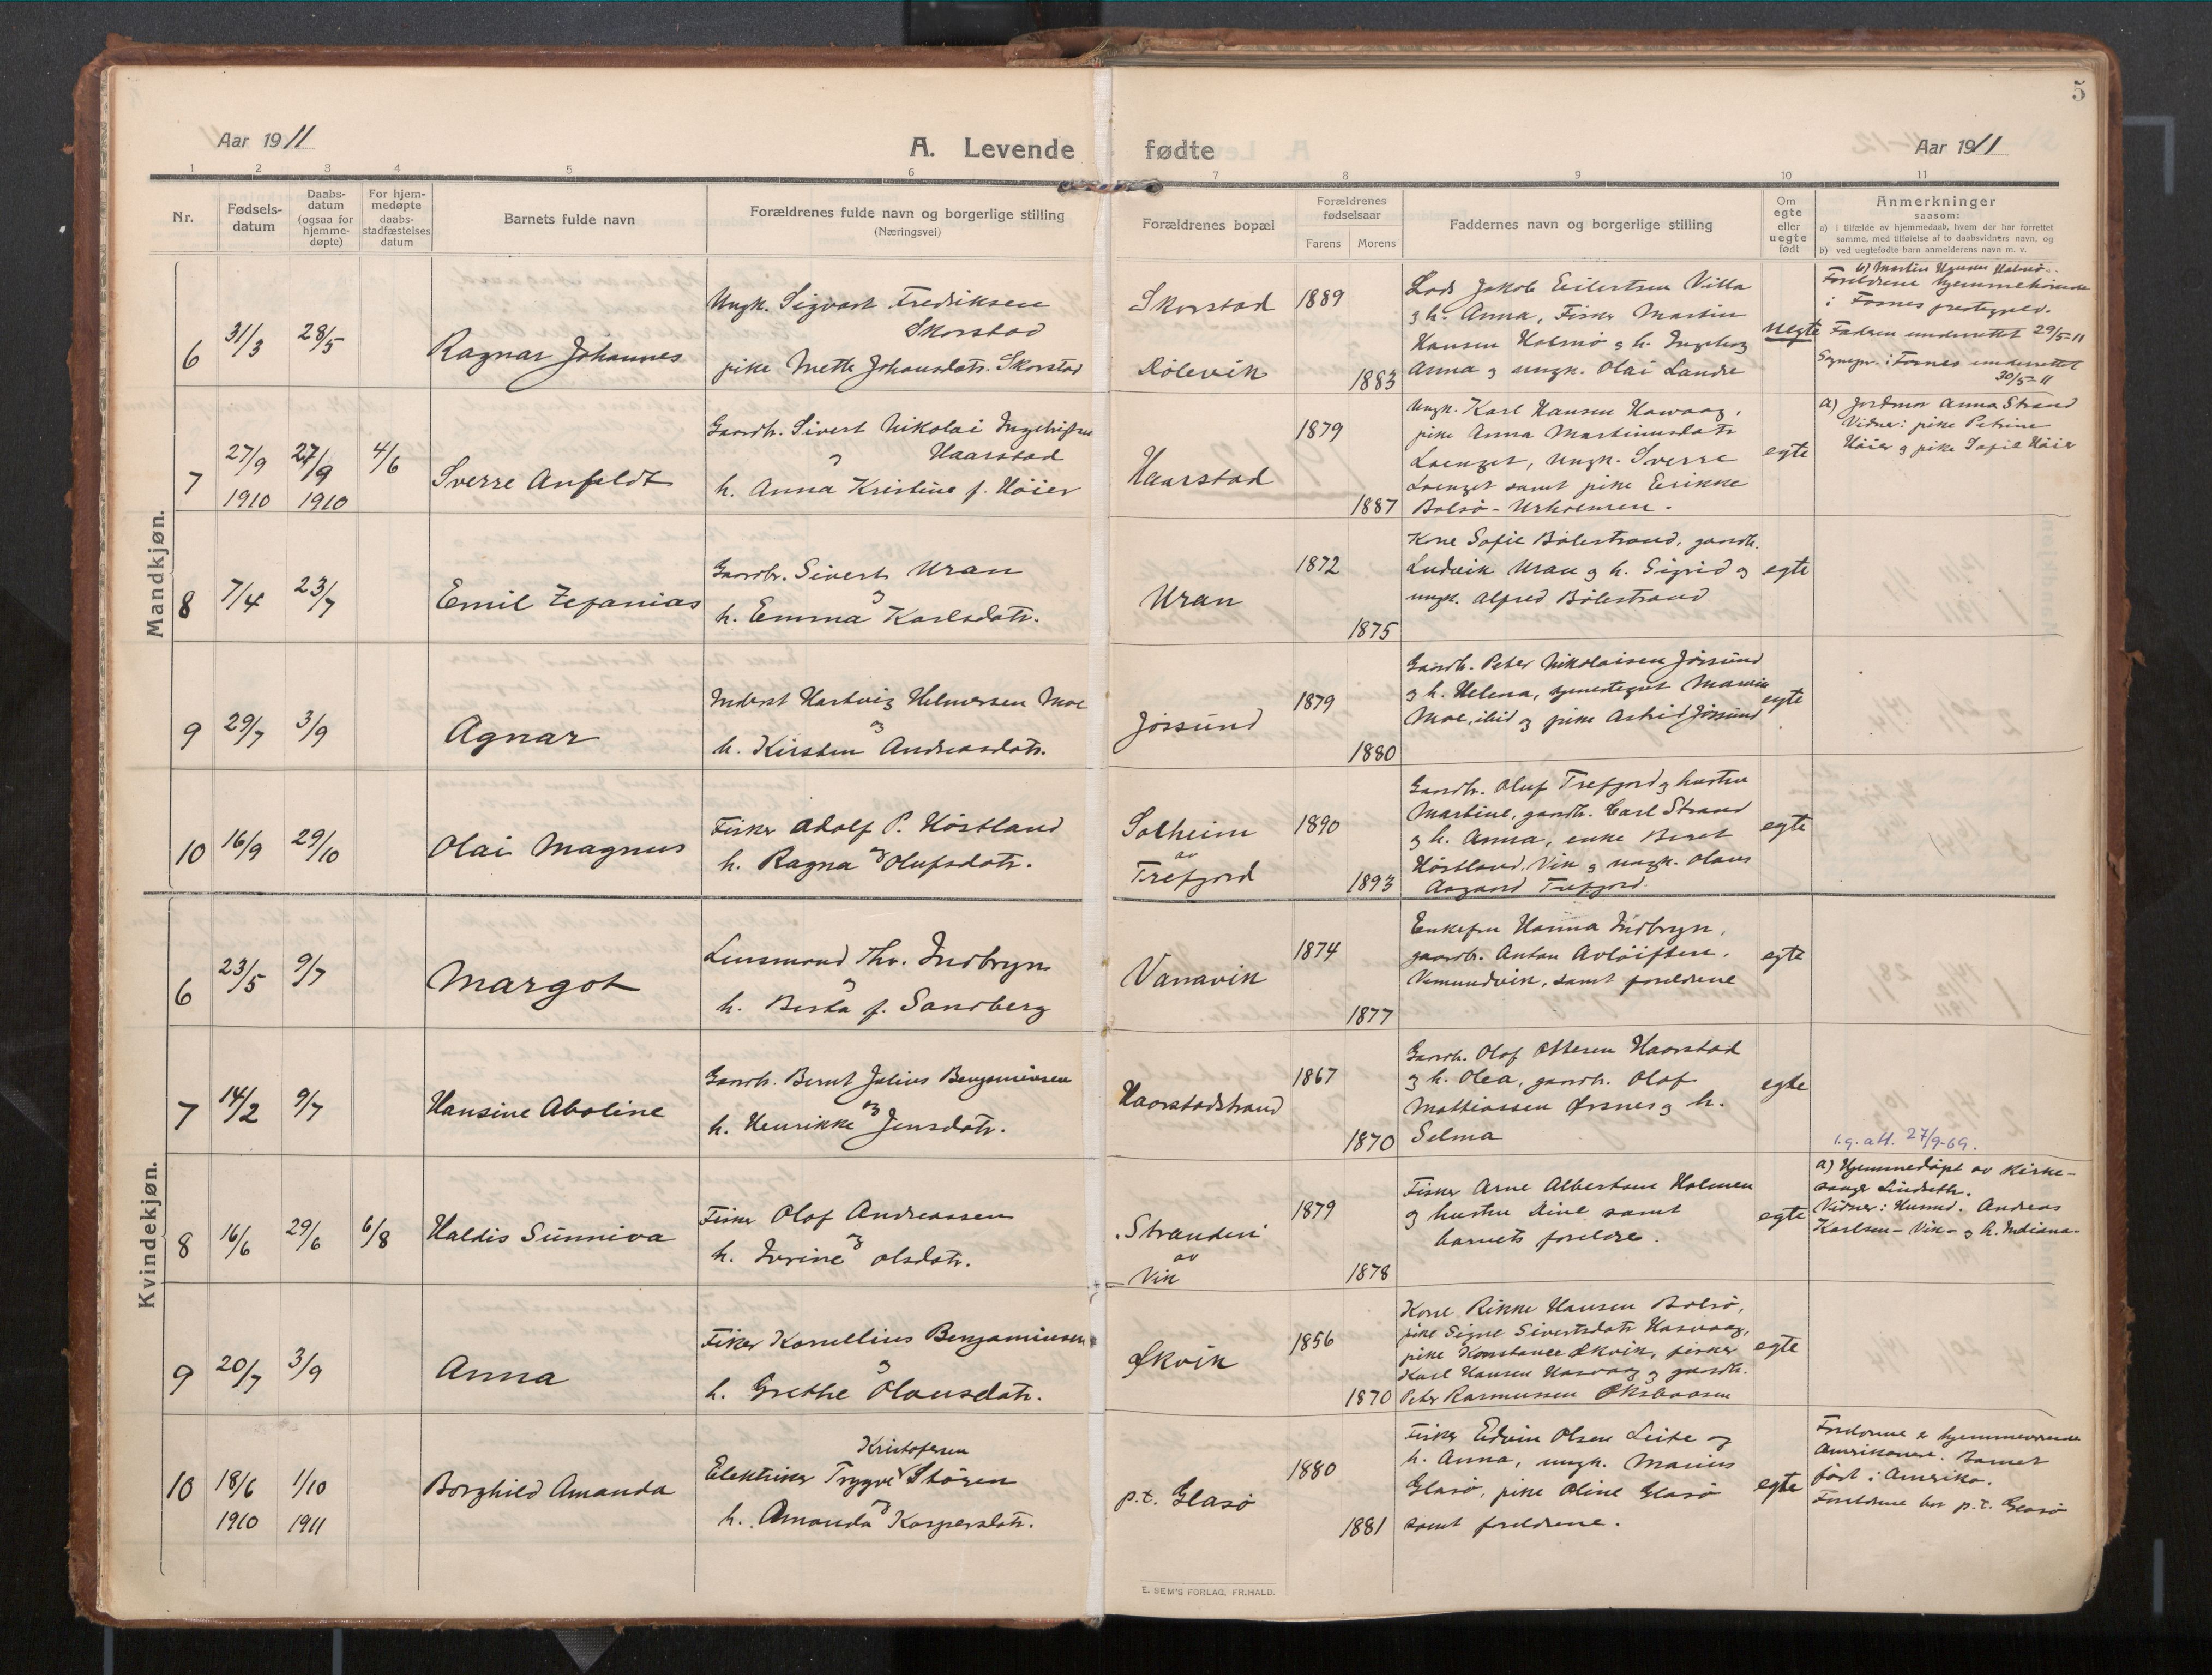 5
Aar 1911
A. Levende fødte
Aar 1911
1 2 3 4 5 6 7 8 9 10 11
Nr.
Fødsels-
datum
Daabs-
datum
(ogsaa for
hjemme-
døpte)
For hjem-
medøpte
daabs-
stadfæstelses
datum
Barnets fulde navn
Forældrenes fulde navn og borgerlige stilling
(Næringsvei)
Forældrenes bopæl
Forældrenes
fødselsaar
Farens Morens
Faddernes navn og borgerlige stilling
Om
egte
eller
uegte
født
Anmerkninger
saasom:
a) i tilfælde av hjemmedaab, hvem der har forrettet
samme, med tilføielse af to daabsvidners navn, og
b) ved uegtefødte barn anmelderens navn m. v.
Mandkjøn.
6 31/3 28/5
Ragnar Johannes
Ungk. Sigvart Fredriksen
Skorstad
pike Mette Johansdatr. Skorstad
Skorstad
Rølevik
1889
1883
Lods Jakob Eilertsen Villa
og h. Anna, Fisker Martin
Hansen Holmø og h. Ingeborg
Anna og ungk. Olai Landre
uegte
b) Martin Hansen Holmø.
Foreldrene hjemmehørende
i Fosnes prestegjeld.
Faderen underrettet 29/5-11
Sogнepr. i Fosnes underrettet
30/5-11
7 27/9 27/9 4/6
1910 1910
Sverre Anfeldt
Gaardbr. Sivert Nikolai Ingebrigtsen
og Haarstad
h. Anna Kristine f. Høier
Haarstad
1879
1887
Ungk. Karl Hansen Hasvaag,
pike Anna Martinusdatr
Lvenget, ungk. Sverre
Lvenget samt pike Erikke
Bolsø - Urholmen.
egte
a) Jordmor Anna Strand
Vidner: pike Petrine
Høier og pike Sofie Høier
8 7/4 23/7
Emil Zefanias
Gaardbr. Sivert Uran
og
h. Emma Karlsdatr.
Uran
1872
1875
Kone Sofie Bølestrand, gaardbr.
Ludvik Uran og h. Sigrid og
ungk. Alfred Bølestrand
egte
9 29/7 3/9
Agnar
Inderst Hartvig Helmersen Moe
og
h. Kirsten Andreasdatr.
Jøssund
1879
1880
Gaardb. Peter Nikolaisen Jøssund
og h. Helena, tjenestegut Marius
Moe, ibid og pike Astrid Jøssund
egte
10 16/9 29/10
Olai Magnus
Fisker Adolf P. Høstland
og
h. Ragna Olufsdatr.
Solheim
av
Trefjord
1890
1893
Gaardbr. Oluf Trefjord og hustru
Martine, gaardb. Carl Strand
og h. Anna, enke Beret
Høstland, Vik og ungk. Olaus
Aagaard Trefjord.
egte
Kvindekjøn.
6 23/5 9/7
Margot
Lensmand Thv. Indbryn
og
h. Berta f. Sandberg
Vanavik
1874
1877
Enkefru Hanna Indbryn,
gaardb. Anton Avløiftsen,
Vemundvik, samt foreldrene
egte
7 14/2 9/7
Hansine Aboline
Gaardb. Bernt Julius Benjaminsen
og
h. Henrikke Jensdatr.
Haarstadstrand
1867
1870
Gaardb. Olaf Ottesen Haarstad
og h. Olea, gaardb. Olaf
Mathiassen Ørsnes og h.
Selma
egte
l.g. att. 27/9-69.
8 16/6 29/6 6/8
Haldis Sunniva
Fisker Olaf Andreassen
og
h. Jorine Olsdatr.
Stranden
av
Vik
1879
1878
Fisker Arne Albertsen Holmen
og hustru Line samt
barnets foreldre.
egte
a) Hjemmedøpt av kirke-
sanger Lindseth.
Vidner: Husmd. Andreas
Karlsen - Vik - og h. Indiana.
9 20/7 3/9
Anna
Fisker Kornellius Benjaminsen
og
h. Grethe Olausdatr.
Økvik
1856
1870
Kone Rikke Hansen Bolsø,
pike Signe Sivertsdatr Hasvaag,
pike Konstance Økvik, fisker
Karl Hansen Hasvaag og gaardb.
Peter Rasmussen Oksbaasen
egte
10 18/6 1/10
1910 1911
Borghild Amanda
Kristofersen
Elektriker Trygve Støren
og
h. Amanda Kaspersdatr.
p.t. Glasø
1880
1881
Fisker Edvin Olsen Leite og
h. Anna, ungk. Marius
Glasø, pike Oline Glasø
samt foreldrene.
egte
Foreldrene er hjemmeværende
Amerikanere. Barnet
født i Amerika.
Foreldrene bor p.t. Glasø
E. SEM'S FORLAG, FR.HALD.